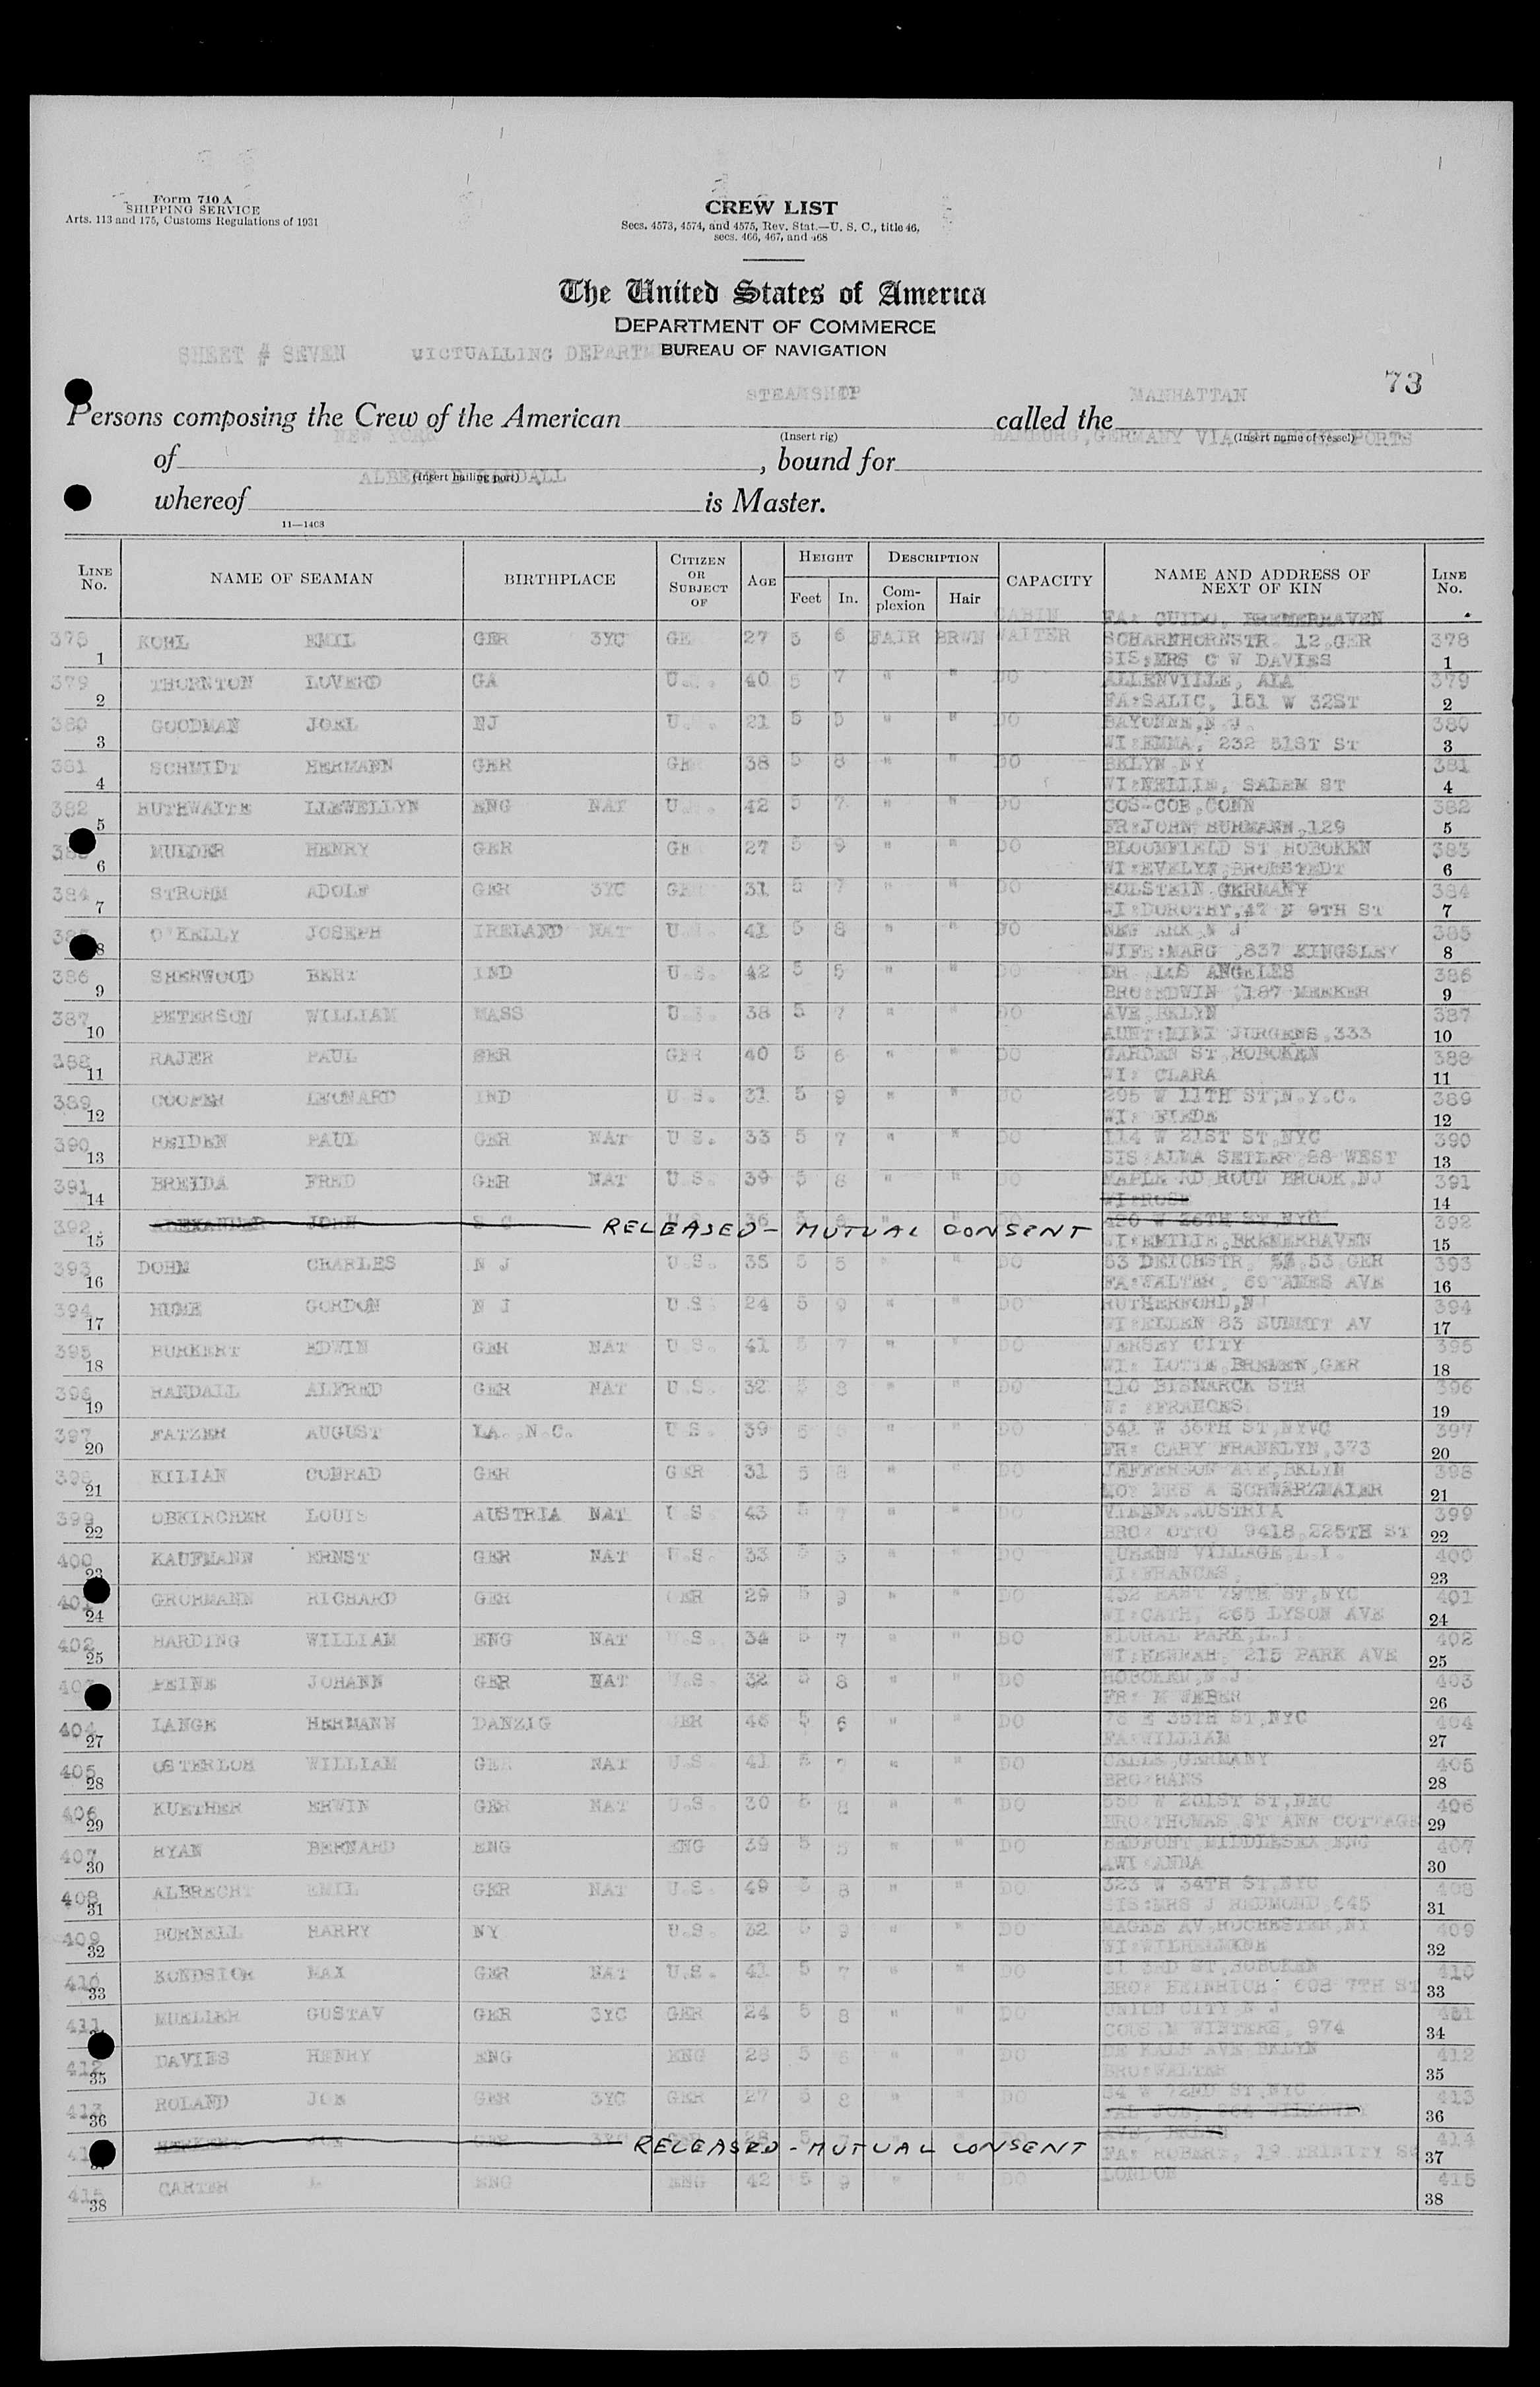 Form 710 A
SHIPPING SERVICE
Arts. 113 and 175, Customs Regulations of 1931
CREW LIST
Secs. 4573, 4574, and 4575, Rev. Stat.—U. S. C., title 46,
secs. 466, 467, and 468
The United States of America
DEPARTMENT OF COMMERCE
BUREAU OF NAVIGATION
SHEET # SEVEN VICTUALLING DEPARTMENT
73
STEAMSHIP MANHATTAN
Persons composing the Crew of the American called the
(Insert rig) (Insert name of vessel)
NEW YORK HAMBURG, GERMANY VIA PORTS
of , bound for
(Insert hailing port)
ALBERT B RANDALL
whereof is Master.
11—1403
LINE No. NAME OF SEAMAN BIRTHPLACE CITIZEN OR SUBJECT OF AGE HEIGHT Feet In. DESCRIPTION Complexion Hair CAPACITY NAME AND ADDRESS OF NEXT OF KIN LINE No.
CABIN FA: GUIDO, BREMERHAVEN
378 1 KOHL EMIL GER 3YC GE 27 5 6 FAIR BRWN WAITER SCHARNHORNSTR. 12,GER 378 1
SIS:MRS C W DAVIES
379 2 THORNTON LOVERD GA U. 40 5 7 " " DO ALLENVILLE, ALA 379 2
FA:SALIC, 151 W 32ST
380 3 GOODMAN JOEL NJ U. 21 5 5 " " DO BAYONNE,N J. 380 3
WI:EMMA, 232 51ST ST
381 4 SCHMIDT HERMANN GER GE 38 5 8 " " DO BKLYN NY 381 4
WI:NELLIE, SALEM ST
382 5 HUTHWAITE LLEWELLYN ENG NAT U. 42 5 7 " " DO COS-COB,CONN 382 5
FR:JOHN BUHMANN,129
383 6 MULDER HENRY GER GE 27 5 9 " " DO BLOOMFIELD ST HOBOKEN 383 6
WI:EVELYN,
384 7 STROHM ADOLF GER 3YC GE 31 5 7 " " DO HOLSTEIN GERMANY 384 7
WI:DOROTHY,47 N 9TH ST
385 8 O'KELLY JOSEPH IRELAND NAT U. 41 5 8 " " DO NEW ARK N J 385 8
WIFE:MARG ,837 KINGSLEY
386 9 SHERWOOD BERT IND U.S. 42 5 5 " " DO DR LOS ANGELES 386 9
BRO:EDWIN ,187 MEEKER
387 10 PETERSON WILLIAM MASS U.S. 38 5 7 " " DO AVE,BKLYN 387 10
AUNT:MIMI JURGENS,333
388 11 RAJER PAUL GER GER 40 5 6 " " DO GARDEN ST,HOBOKEN 388 11
WI: CLARA
389 12 COOPER LEONARD IND U S. 31 5 9 " " DO 295 W 11TH ST,N.Y.C. 389 12
WI: FIEDE
390 13 HEIDEN PAUL GER NAT U S. 33 5 7 " " DO 114 W 21ST ST,NYC 390 13
SIS:ALMA SETLER 28 WEST
391 14 BREIDA FRED GER NAT U S. 39 5 8 " " DO MAPLE RD ROUD BROOK,NJ 391 14
WI:ROSE
392 15 ALEXANDER JOHN S C 36 RELEASED - MUTUAL CONSENT W 26TH ST,NYC 392 15
WI:EMILIE,BREMERHAVEN
393 16 DOHM CHARLES N J U.S. 35 5 5 " " DO 53 DEICHSTR. 53 GER 393 16
FA:WALTER, 69 AMES AVE
394 17 HUME GORDON N J U.S 24 5 9 " " DO RUTHERFORD,NJ 394 17
WI:ELLEN 83 SUMMIT AV
395 18 BURKERT EDWIN GER NAT U S. 41 5 7 " " DO JERSEY CITY 395 18
WI: LOTTE,BREMEN,GER
396 19 RANDALL ALFRED GER NAT U.S. 32 5 8 " " DO 110 BISMARCK STR 396 19
W: :FRANCES
397 20 FATZER AUGUST LA. N.C. U S. 39 5 " " DO 341 W 36TH ST,NYVC 397 20
FR: CARY FRANKLYN,373
398 21 KILIAN CONRAD GER GER 31 5 8 " " DO JEFFERSON AVE,BKLYN 398 21
MO: MRS A SCHWARZMAIER
399 22 OBKIRCHER LOUIS AUSTRIA NAT U S 43 5 7 " " DO VIENNA,AUSTRIA 399 22
BRO: OTTO 9418,225TH ST
400 23 KAUFMANN ERNST GER NAT U.S. 33 5 5 " " DO QUEENS VILLAGE,L.I. 400 23
WI:FRANCES,
401 24 GROHMANN RICHARD GER GER 29 5 9 " " DO 432 EAST 79TH ST,NYC 401 24
WI:CATH, 265 LYSON AVE
402 25 HARDING WILLIAM ENG NAT U S. 34 5 7 " " DO FLORAL PARK,L.I. 402 25
WI:HENNAH, 215 PARK AVE
403 PEINE JOHANN GER NAT U.S 32 5 8 " " DO HOBOKEN,N J 403 26
FR: M WEBER
404 27 LANGE HERMANN DANZIG GER 46 5 6 " " DO 76 E 35TH ST,NYC 404 27
FA:WILLIAM
405 28 OSTERLOH WILLIAM GER NAT U.S 41 5 7 " " DO CELLE,GERMANY 405 28
BRO:HANS
406 29 KUETHER ERWIN GER NAT U.S 30 5 8 " " DO 550 W 201ST ST, 406 29
BRO:THOMAS,ST ANN COTTAGE
407 30 RYAN BERNARD ENG ENG 39 5 5 " " DO BEDFONT,MIDDLESEX ENG 407 30
AWI:ANNA
408 31 ALBRECHT EMIL GER NAT U.S. 49 5 8 " " DO 323 W 34TH ST,NYC 408 31
SIS:MRS J REDMOND 645
409 32 BURNELL HARRY NY U.S. 32 5 9 " " DO MAGEE AV,ROCHESTER,NY 409 32
WI:WILHELMINE
410 33 KONDSIOR MAX GER NAT U.S. 41 5 7 " " DO 51 3RD ST,HOBOKEN 410 33
BRO: HEINRICH 608 7TH ST
411 MUELLER GUSTAV GER 3YC GER 24 5 8 " " DO UNION CITY N J 411 34
COUS M WINTERS, 974
412 35 DAVIES HENRY ENG ENG 28 5 6 " " DO DE KALB AVE BKLYN 412 35
BRO:WALTER
413 36 ROLAND JOE GER 3YC GER 27 5 8 " " DO 34 W 72ND ST,NYC 413 36
GER 3YC RELEASED - MUTUAL CONSENT 414 37
FA: ROBERT, 19 TRINITY
415 38 CARTER ENG ENG 42 5 9 " " DO LONDON 415 38